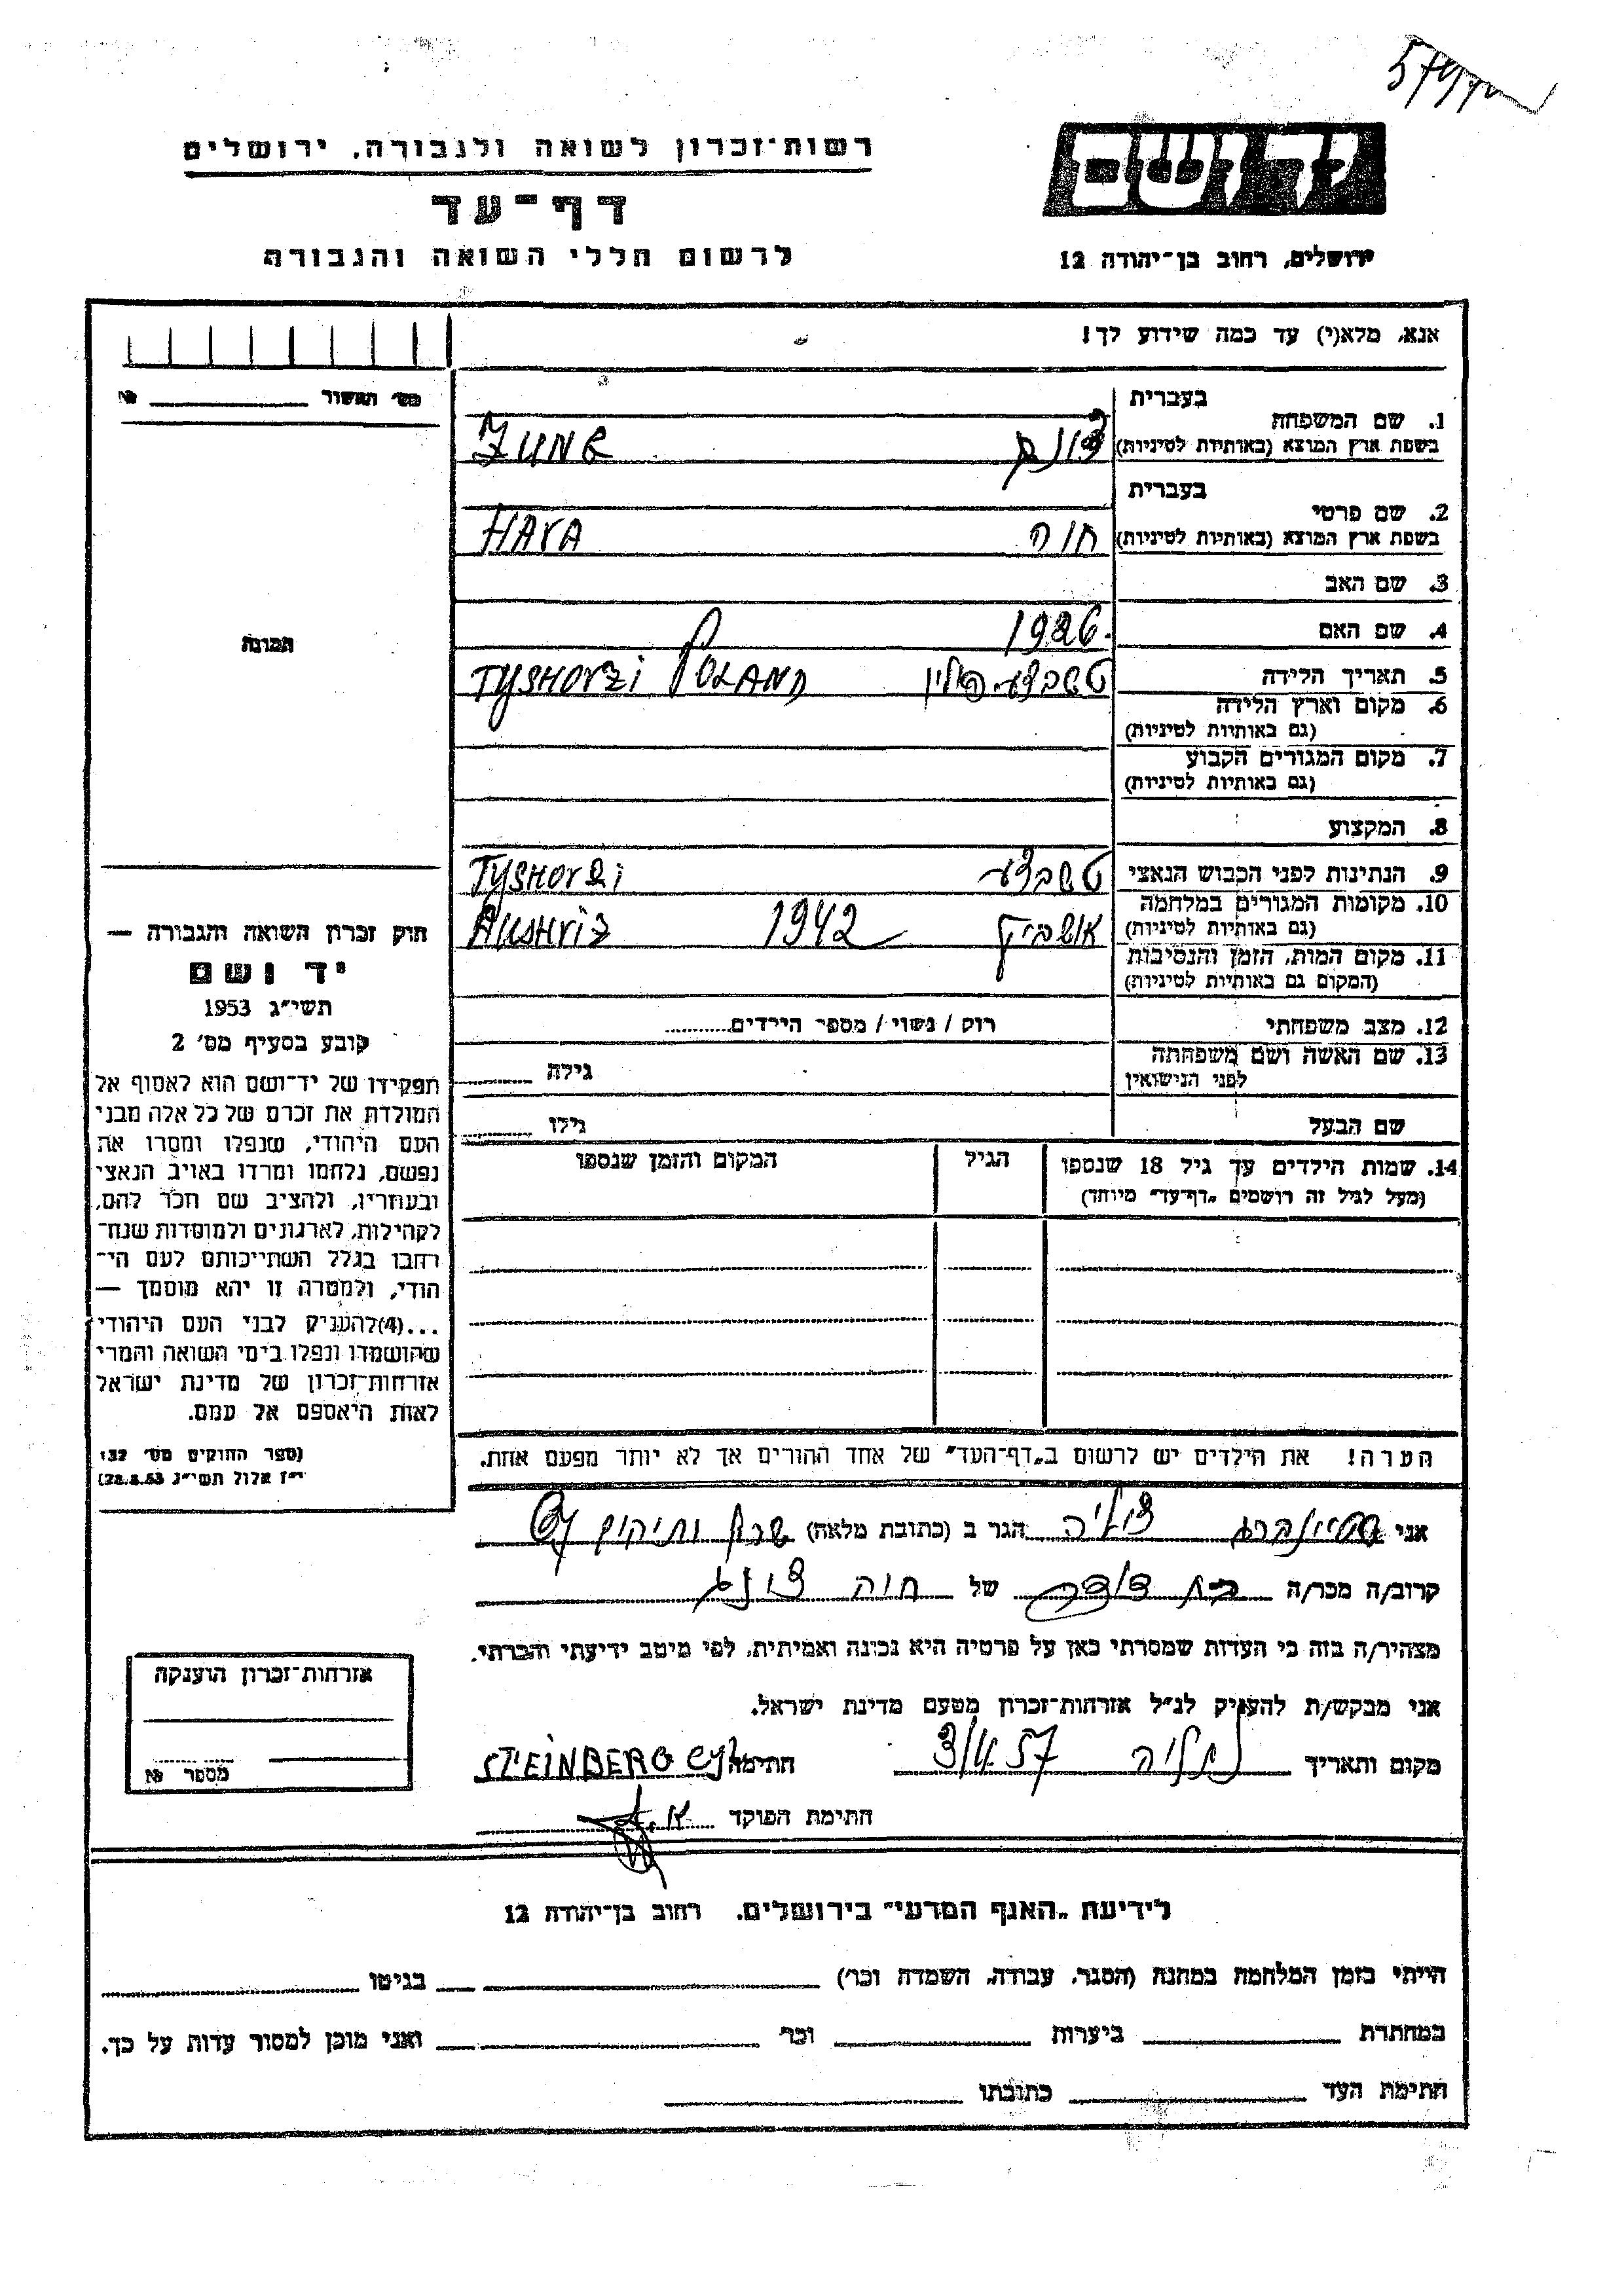 רשות־זכרון לשואה ולגבורה, ירושלים
דף־עד
לרשום חללי השואה והגבורה
יד ושם
ירושלים, רחוב בן־יהודה 12
אנא, מלא(י) עד כמה שידוע לך!
מס׳ האשור № 
בעברית
1. שם המשפחה
בשפת ארץ המוצא (באותיות לטיניות)
ZUNG
בעברית
2. שם פרטי
בשפת ארץ המוצא (באותיות לטיניות) חוה HAVA
3. שם האב
4. שם האם
1926.
5. תאריך הלידה
6. מקום וארץ הלידה
(גם באותיות לטיניות)
פולין POLAND
7. מקום המגורים הקבוע
(גם באותיות לטיניות)
8. המקצוע
9. הנתינות לפני הכבוש הנאצי
10. מקומות המגורים במלחמה
(גם באותיות לטיניות)
1942
11. מקום המות, הזמן והנסיבות
(המקום גם באותיות לטיניות)
12. מצב משפחתי רווק / נשוי / מספר הילדים
13. שם האשה ושם משפחתה
לפני הנישואין גילה
שם הבעל גילו
14. שמות הילדים עד גיל 18 שנספו הגיל המקום והזמן שנספו
(מעל לגיל זה רושמים „דף־עד״ מיוחד)
התמונה
חוק זכרון השואה והגבורה —
יד ושם
תשי״ג 1953
קובע בסעיף מס׳ 2
תפקידו של יד־ושם הוא לאסוף אל
המולדת את זכרם של כל אלה מבני
העם היהודי, שנפלו ומסרו את
נפשם, נלחמו ומרדו באויב הנאצי
ובעוזריו, ולהציב שם וזכר להם,
לקהילות, לארגונים ולמוסדות שנח־
רבו בגלל השתייכותם לעם הי־
הודי, ולמטרה זו יהא מוסמך —
...(4)להעניק לבני העם היהודי
שהושמדו ונפלו בימי השואה והמרי
אזרחות־זכרון של מדינת ישראל
לאות היאספם אל עמם.
(ספר החוקים מס׳ 132
י״ז אלול תשי״ג 28.8.53)
הערה! את הילדים יש לרשום ב„דף־העד״ של אחד ההורים אך לא יותר מפעם אחת.
אני שטיינברג צילה הגר ב (כתובת מלאה)
קרוב/ה מכר/ה בת דודה של חוה צונג
מצהיר/ה בזה כי העדות שמסרתי כאן על פרטיה היא נכונה ואמיתית, לפי מיטב ידיעתי והכרתי.
אני מבקש/ת להעניק לנ״ל אזרחות־זכרון מטעם מדינת ישראל.
מקום ותאריך נתניה 3/4 57 חתימה STEINBERG
חתימת הפוקד
אזרחות־זכרון הוענקה
מספר №
לידיעת „האגף המדעי״ בירושלים, רחוב בן־יהודה 12
הייתי בזמן המלחמה במחנה (הסגר, עבודה, השמדה וכו׳) בגיטו
במחתרת ביערות וכו׳ ואני מוכן למסור עדות על כך.
חתימת העד כתובתו